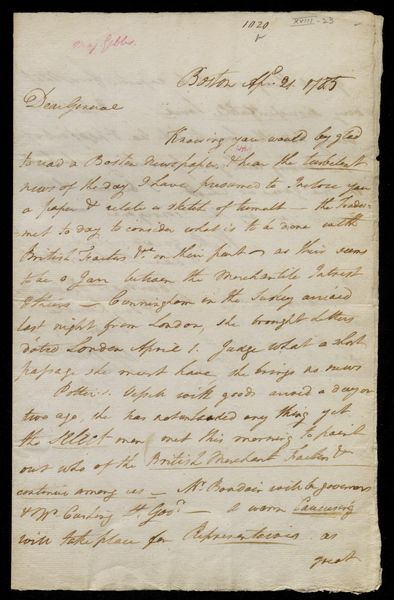 Maj. Gibbs.
1020
XVIII-23
Boston Apl. 21. 1785
Dear General
Knowing you would be glad
to read a Boston Newspaper, & hear the turbulent
news of the day I have presumed to Inclose you
a paper & relate a sketch of tumult — the trades
met to day to consider what is to be done with
British Factors &c on their part as this seems
to be a Jarr between the Merchantile Interest
& theirs — Cunningham in the Suckey arrived
last night from London, she brought Letters
dated London April 1. Judge what a short
passage she must have she brings no news
Potter's Vessel with goods arrived a day or
two ago, she has not unloaded any thing yet
the Select men met this morning to point
out who of the British Merchant Factors &c
continue among us — Mr. Bowdoin will be governor
& Mr Cushing Lt. Govr. — a warm Caucusing
will take place for Representatives as
great